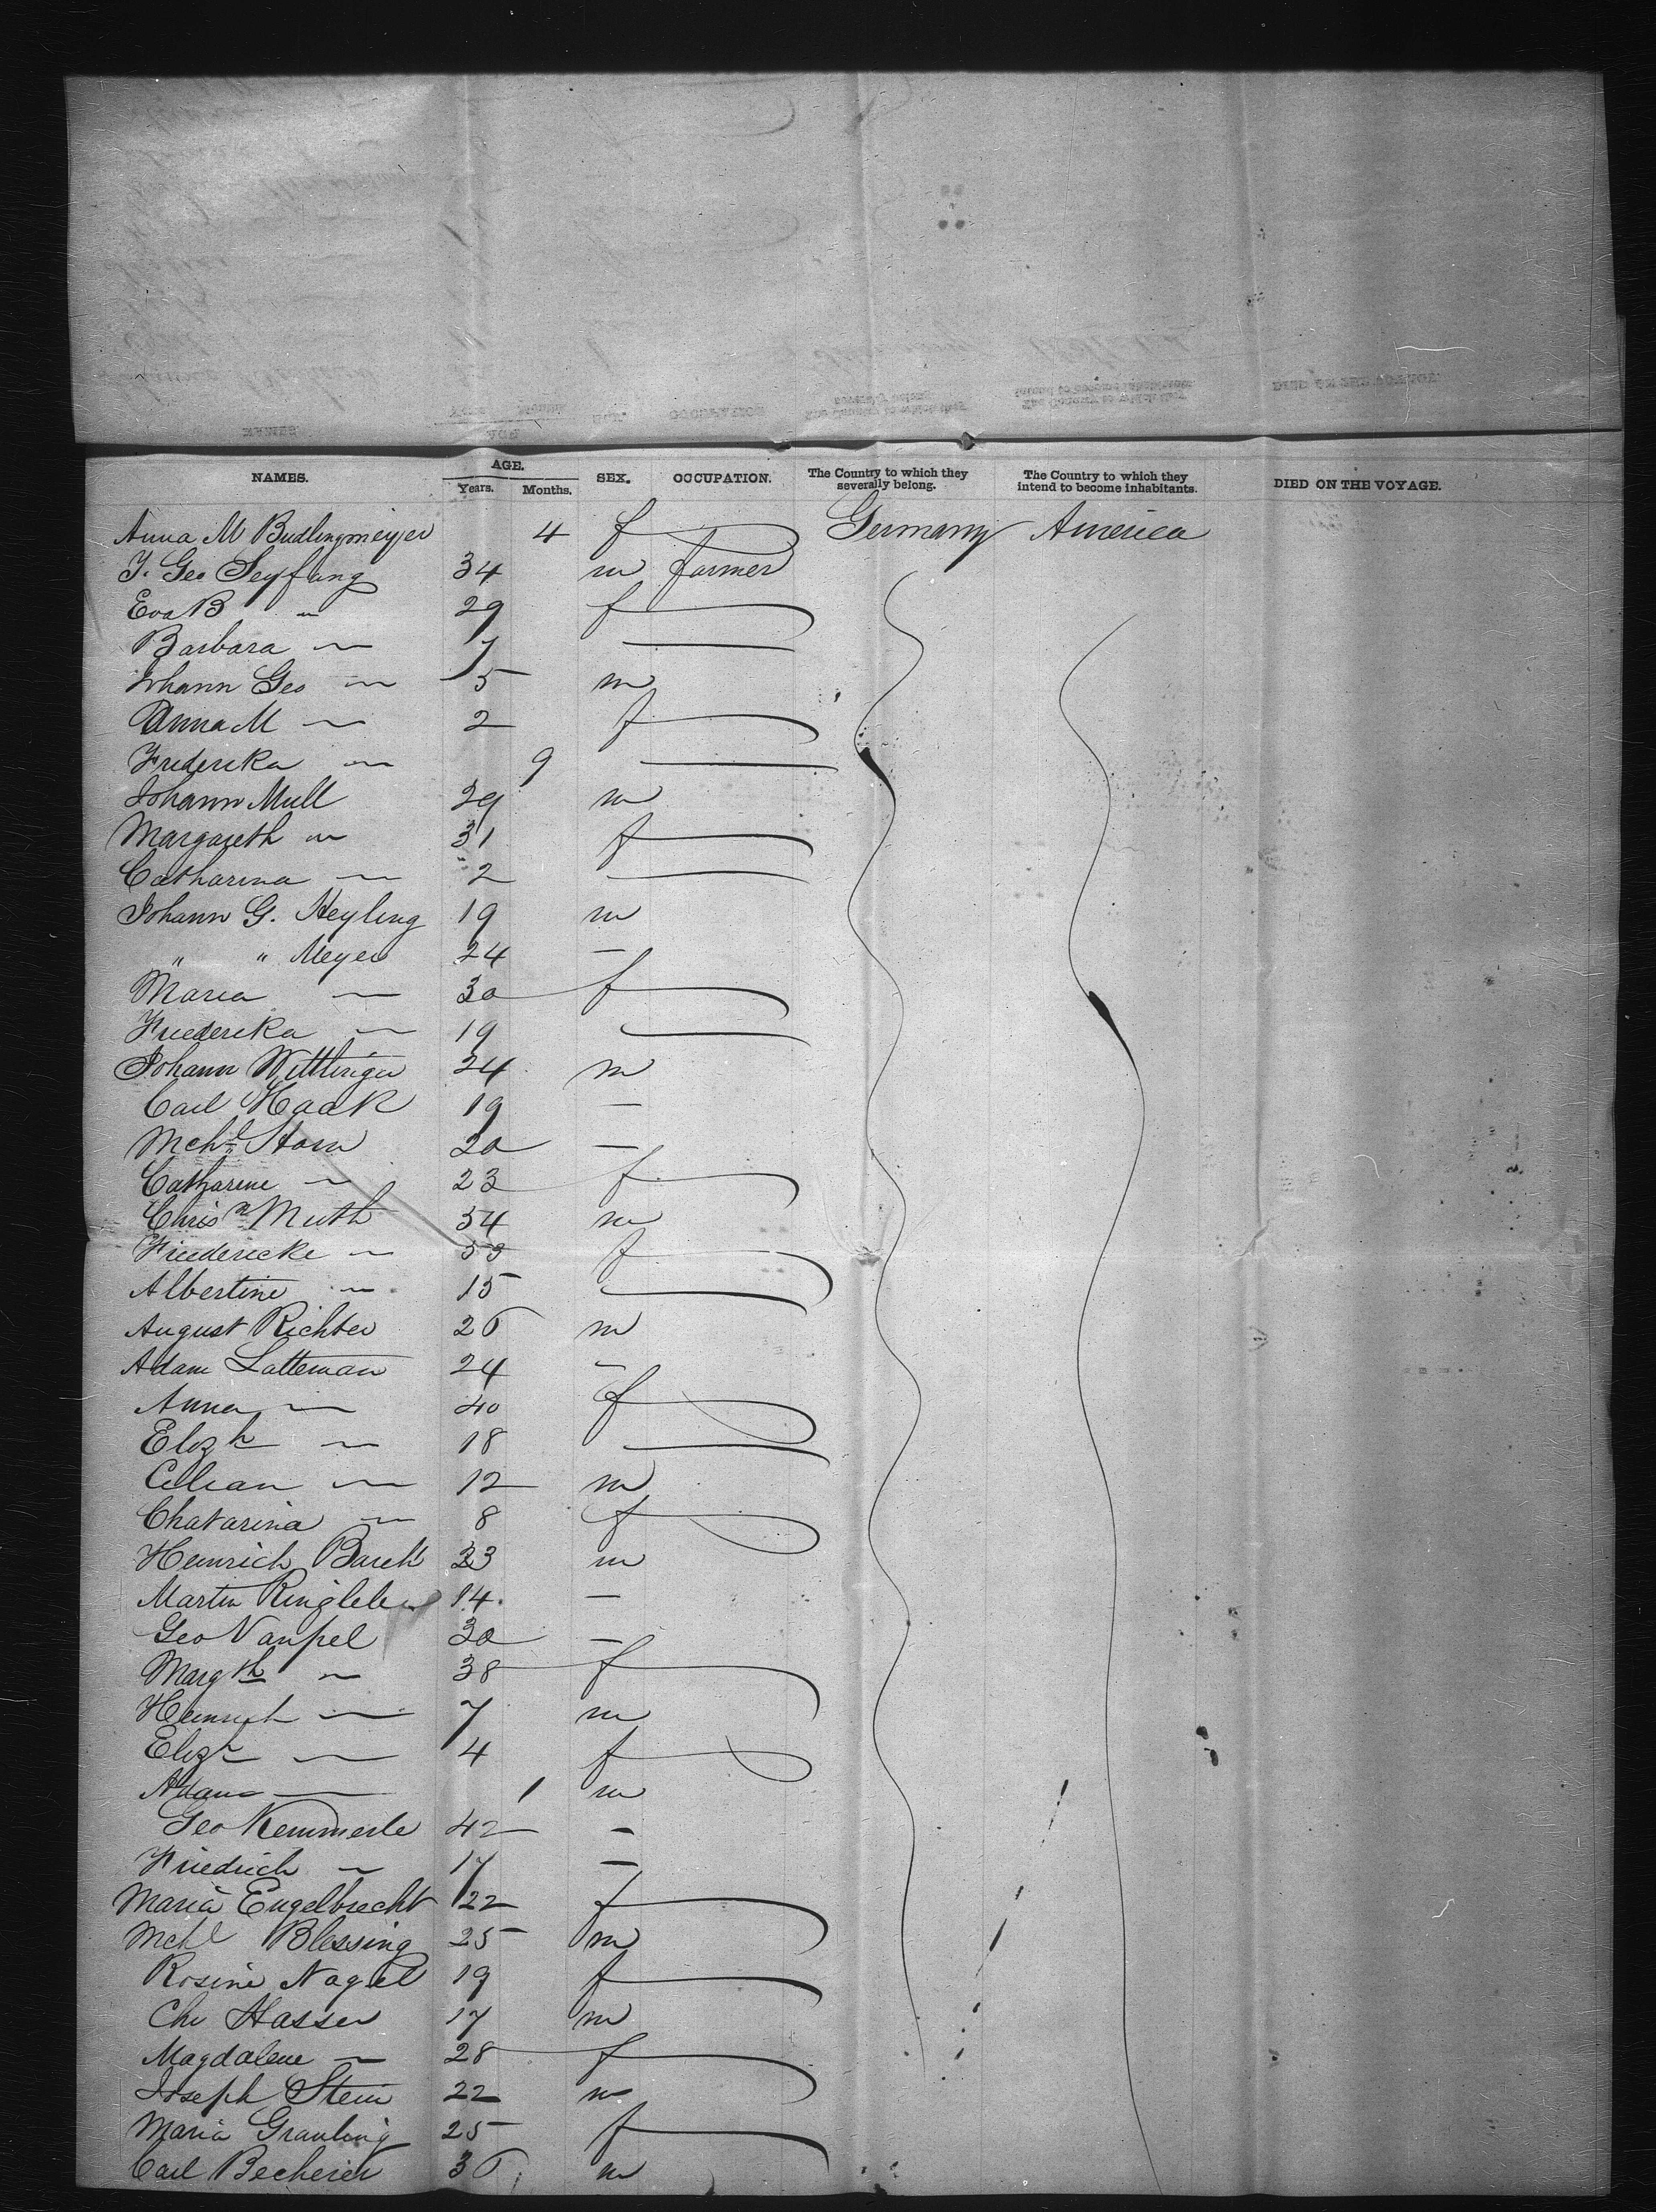 NAMES. AGE. SEX. OCCUPATION. The Country to which they severally belong. The Country to which they intend to become inhabitants. DIED ON THE VOYAGE.
Years. Months.
Anna M Budlingmeyer 4 f Germany America
J. Geo Seyfang 34 m farmer
Eva B " 29 f
Barbara " 7 —
Johann Geo " 5 m
Anna M " 2 f
Frederika " 9 —
Johann Mull 29 m
Margareth " 31 f
Catharina " 2 —
Johann G. Heyling 19 m
" " Meyer 24 —
Maria " 30 f
Friederika " 19 —
Johann Wittlinger 24 m
Carl Haak 19 —
Mchl Horn 20 —
Catharine " 23 f
Chrisn Muth 54 m
Friedericke " 53 f
Albertine " 15 —
August Richter 26 m
Adam Latteman 24 —
Anna " 40 f
Elizh " 18 —
Cilian " 12 m
Chatarina " 8 f
Heinrich Barth 23 m
Martin Ringleben 14 —
Geo Vanpel 30 —
Margth " 38 f
Heinrich " 7 m
Elizh " 4 f
Adam " 1 m
Geo Kemmerle 42 —
Friedrich " 17 —
Maria Engelbrecht 22 f
Mchl Blessing 25 m
Rosine Nagel 19 f
Chr Hasser 17 m
Magdalene " 28 f
Joseph Stein 22 m
Maria Grauling 25 f
Carl Becherer 36 m